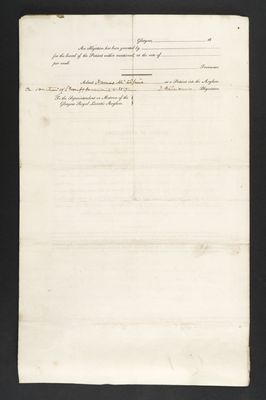 Glasgow, 18
An obligation has been granted by
for the board of the Patient within mentioned, at the rate of
per week.
Treasurer.
Admit James Mc as a Patient into the Asylum
On Physician
To the Superintendent or Matron of the
Glasgow Royal Lunatic Asylum.